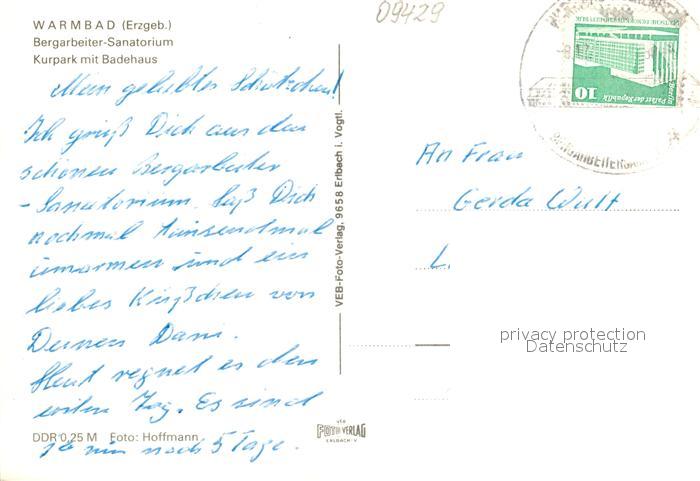 WARMBAD (Erzgeb.)
Bergarbeiter-Sanatorium
Kurpark mit Badehaus
09429
Mein geliebtes Schätzchen!
Ich grüß Dich aus den
schönen Bergarbeiter
-Sanatorium. Laß Dich
nochmal tausendmal
umarmen und ein
liebes Küßchen von
Deinem
Heut regnet es den
ersten Tag. Es sind
ja nur noch 5 Tage.
DDR 0,25 M Foto: Hoffmann
VEB-Foto-Verlag, 9658 Erlbach i. Vogtl.
VEB
FOTO VERLAG
ERLBACH i. V.
10
Berlin
Palast der Republik
An Frau
Gerda Wulf
L.
privacy protection
Datenschutz